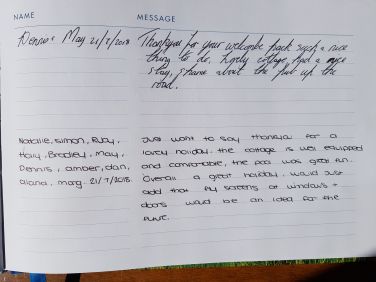 NAME MESSAGE
Dennis & May 21/7/2018
Thankyou for your welcome pack such a nice
thing to do, lovely cottage, had a nice
stay, shame about the pub up the
road.
Natalie, Simon, Ruby,
Harry, Bradley, May,
Dennis, amber, dan,
alana, marg. 21/7/2018.
Just want to say thankyou for a
lovely holiday. the cottage is well equipped
and comfortable, the pool was great fun.
Overall a great holiday. would just
add that fly screens at windows +
doors would be an idea for the
future.